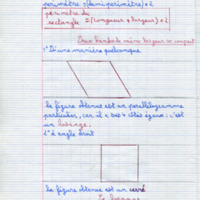 périmètre : (demi-périmètre) × 2
périmètre du
rectangle = (Longueur + largeur) × 2
Deux bandes de même largeur se coupent
1° D'une manière quelconque
La figure obtenue est un parallélogramme
particulier, car il a ses 4 côtés égaux : c'est
un losange.
2° à angle droit
La figure obtenue est un carré
Le losange